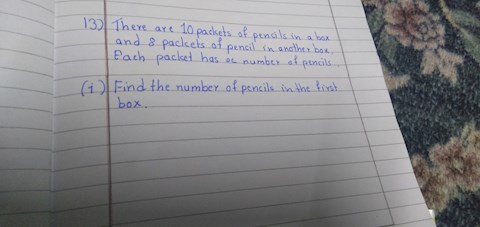 13) There are 10 packets of pencils in a box
and 8 packets of pencil in another box.
Each packet has x number of pencils.
(i.) Find the number of pencils in the first
box.